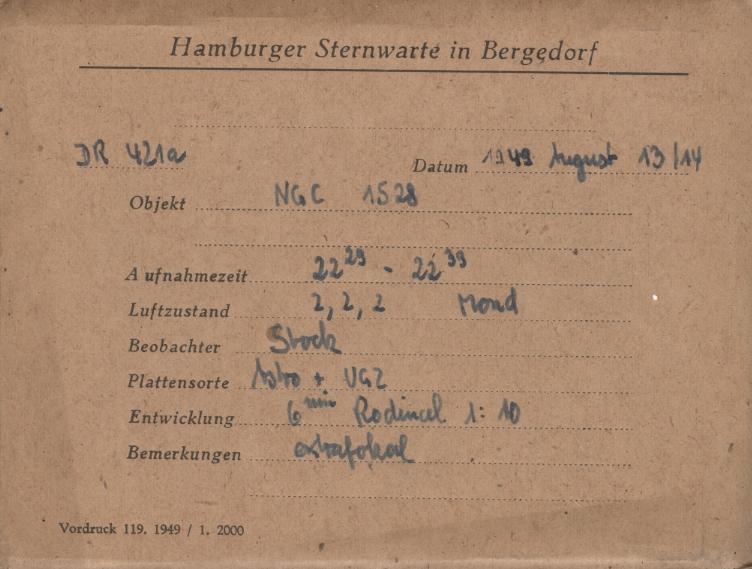 Hamburger Sternwarte in Bergedorf
DR 421a Datum 1949 August 13/14
Objekt NGC 1528
Aufnahmezeit 22²⁹ - 22³⁹
Luftzustand 2, 2, 2 Mond
Beobachter Stock
Plattensorte Astro + UG2
Entwicklung 6 min Rodinal 1:10
Bemerkungen extrafokal
Vordruck 119. 1949 / 1. 2000